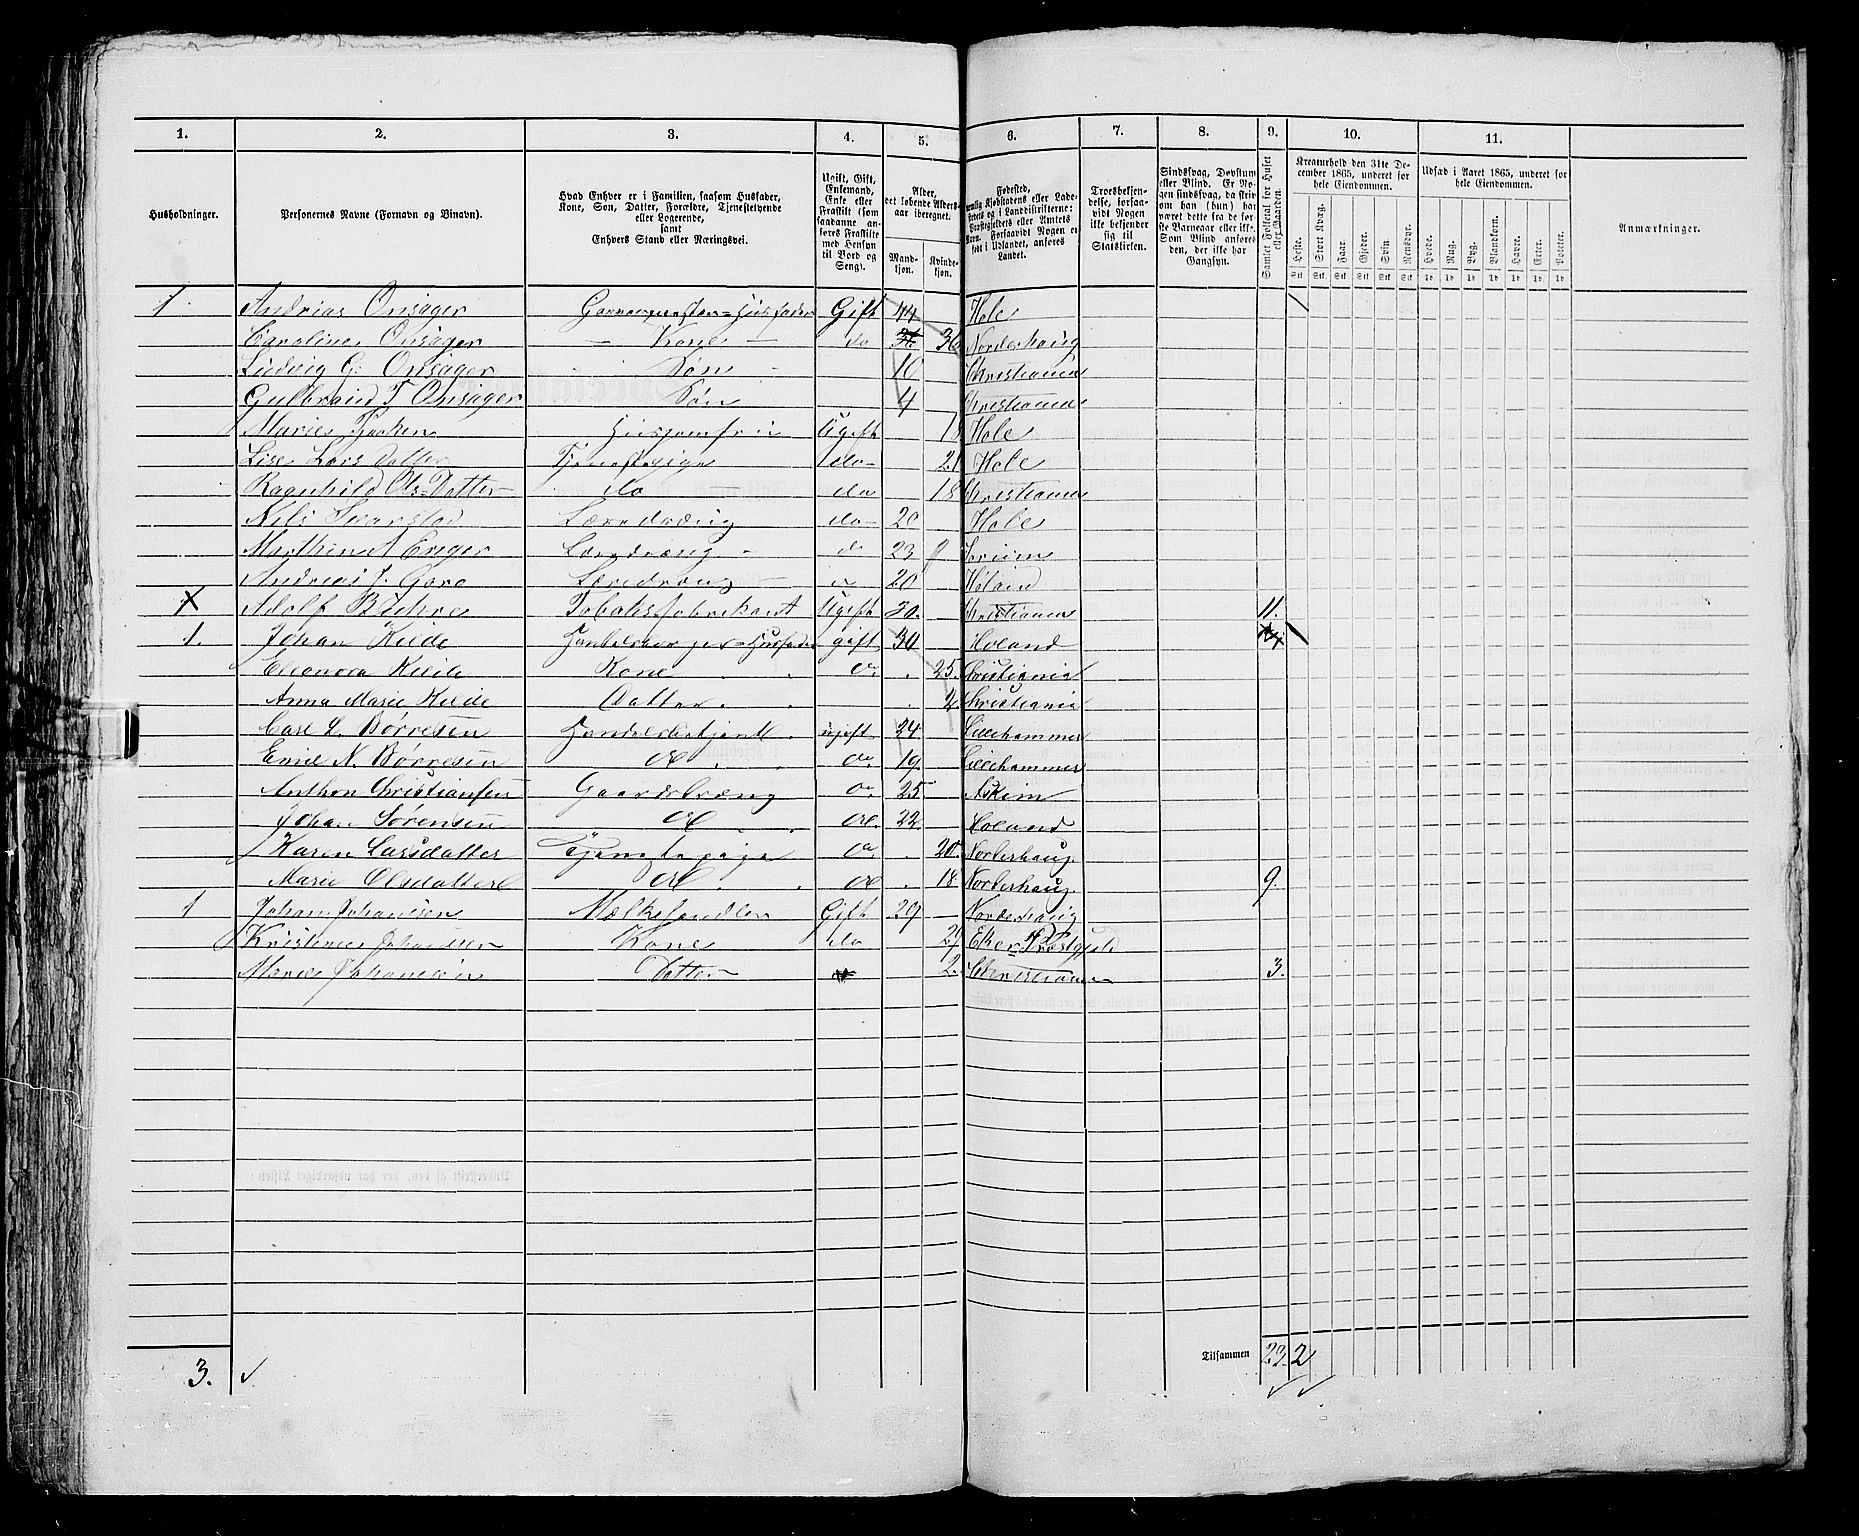 1. 2. 3. 4. 5. 6. 7. 8. 9. 10. 11.
Husholdninger.
Personernes Navne (Fornavn og Binavn).
Hvad Enhver er i Familien, saasom Husfader,
Kone, Søn, Datter, Forældre, Tjenestetyende
eller Logerende,
samt
Enhvers Stand eller Næringsvei.
Ugift, Gift,
Enkemand,
Enke eller
Fraskilt (som
saadanne an-
føres Fraskilte
med Hensyn
til Bord og
Seng).
Alder,
det løbende Alders-
aar iberegnet.
Mand-
kjøn.
Kvinde-
kjøn.
Fødested,
nemlig Kjøbstadens eller Lade-
stedets og i Landdistrikterne:
Præstegjeldets eller Amtets
Navn. Forsaavidt Nogen er
født i Udlandet, anføres
Landet.
Troesbekjen-
delse, forsaa-
vidt Nogen
ikke bekjender
sig til
Statskirken.
Sindssvag, Døvstum
eller Blind. Er No-
gen sindssvag, da skriv
om han (hun) har
været dette fra de før-
ste Barneaar eller ikke.
Som Blind anføres
den, der ikke har
Gangsyn.
Samlet Folketal for Huset
eller Gaarden.
Kreaturhold den 31te De-
cember 1865, underet for
hele Eiendommen.
Heste. Stort Kvæg. Faar. Gjeder. Svin. Rensdyr.
Udsæd i Aaret 1865, underet for
hele Eiendommen.
Hvede. Rug. Byg. Blandkorn. Havre. Erter. Poteter.
Anmærkninger.
1. Andrias Onsager Garvermester = Husfader Gift 44 Hole
Caroline Onsager Kone do 36 Norderhoug
Ludvig G. Onsager Søn 10 Christiania
Gulbrand T Onsager Søn 4 Christiania
Marie Husjomfru Ugift 18 Hole
Lise Lars Datter Tjenestepige do 21 Hole
Ragnhild Ols=Datter do do 18 Christiania
Nils Læredræng do 20 Hole
Marthin A Læredræng d 23
Andreas J. Læredræng 20 Høland
X Adolf Tobaksfabrikant Ugift 30. Christiania 11.
1. Johan Kilde Husfader gift 34 Høland
Eleonora Kilde Kone do. 25. Christiania
Anna Marie Kilde Datter. 2 Christiania
Carl L. Børresen Handelsbetjent. ugift. 24 Lillehammer
Emil N. Børresen do do. 19. Lillehammer
Anthon Christiansen Gaardsdræng do. 25. Askim
Johan Sørensen do do. 22. Høland
Karen Larsdatter Tjenestepige do. 20. Norderhaug.
Marie Olsdatter do do. 18. Norderhaug. 9.
1 Johan Johansen Mælkehandler Gift 29 Norderhaug
Kristine Johansen Kone do 29 Eker Præstgjeld
Marie Johansen Datter 2. Christiania 3.
3. ✓ Tilsammen 23. 2